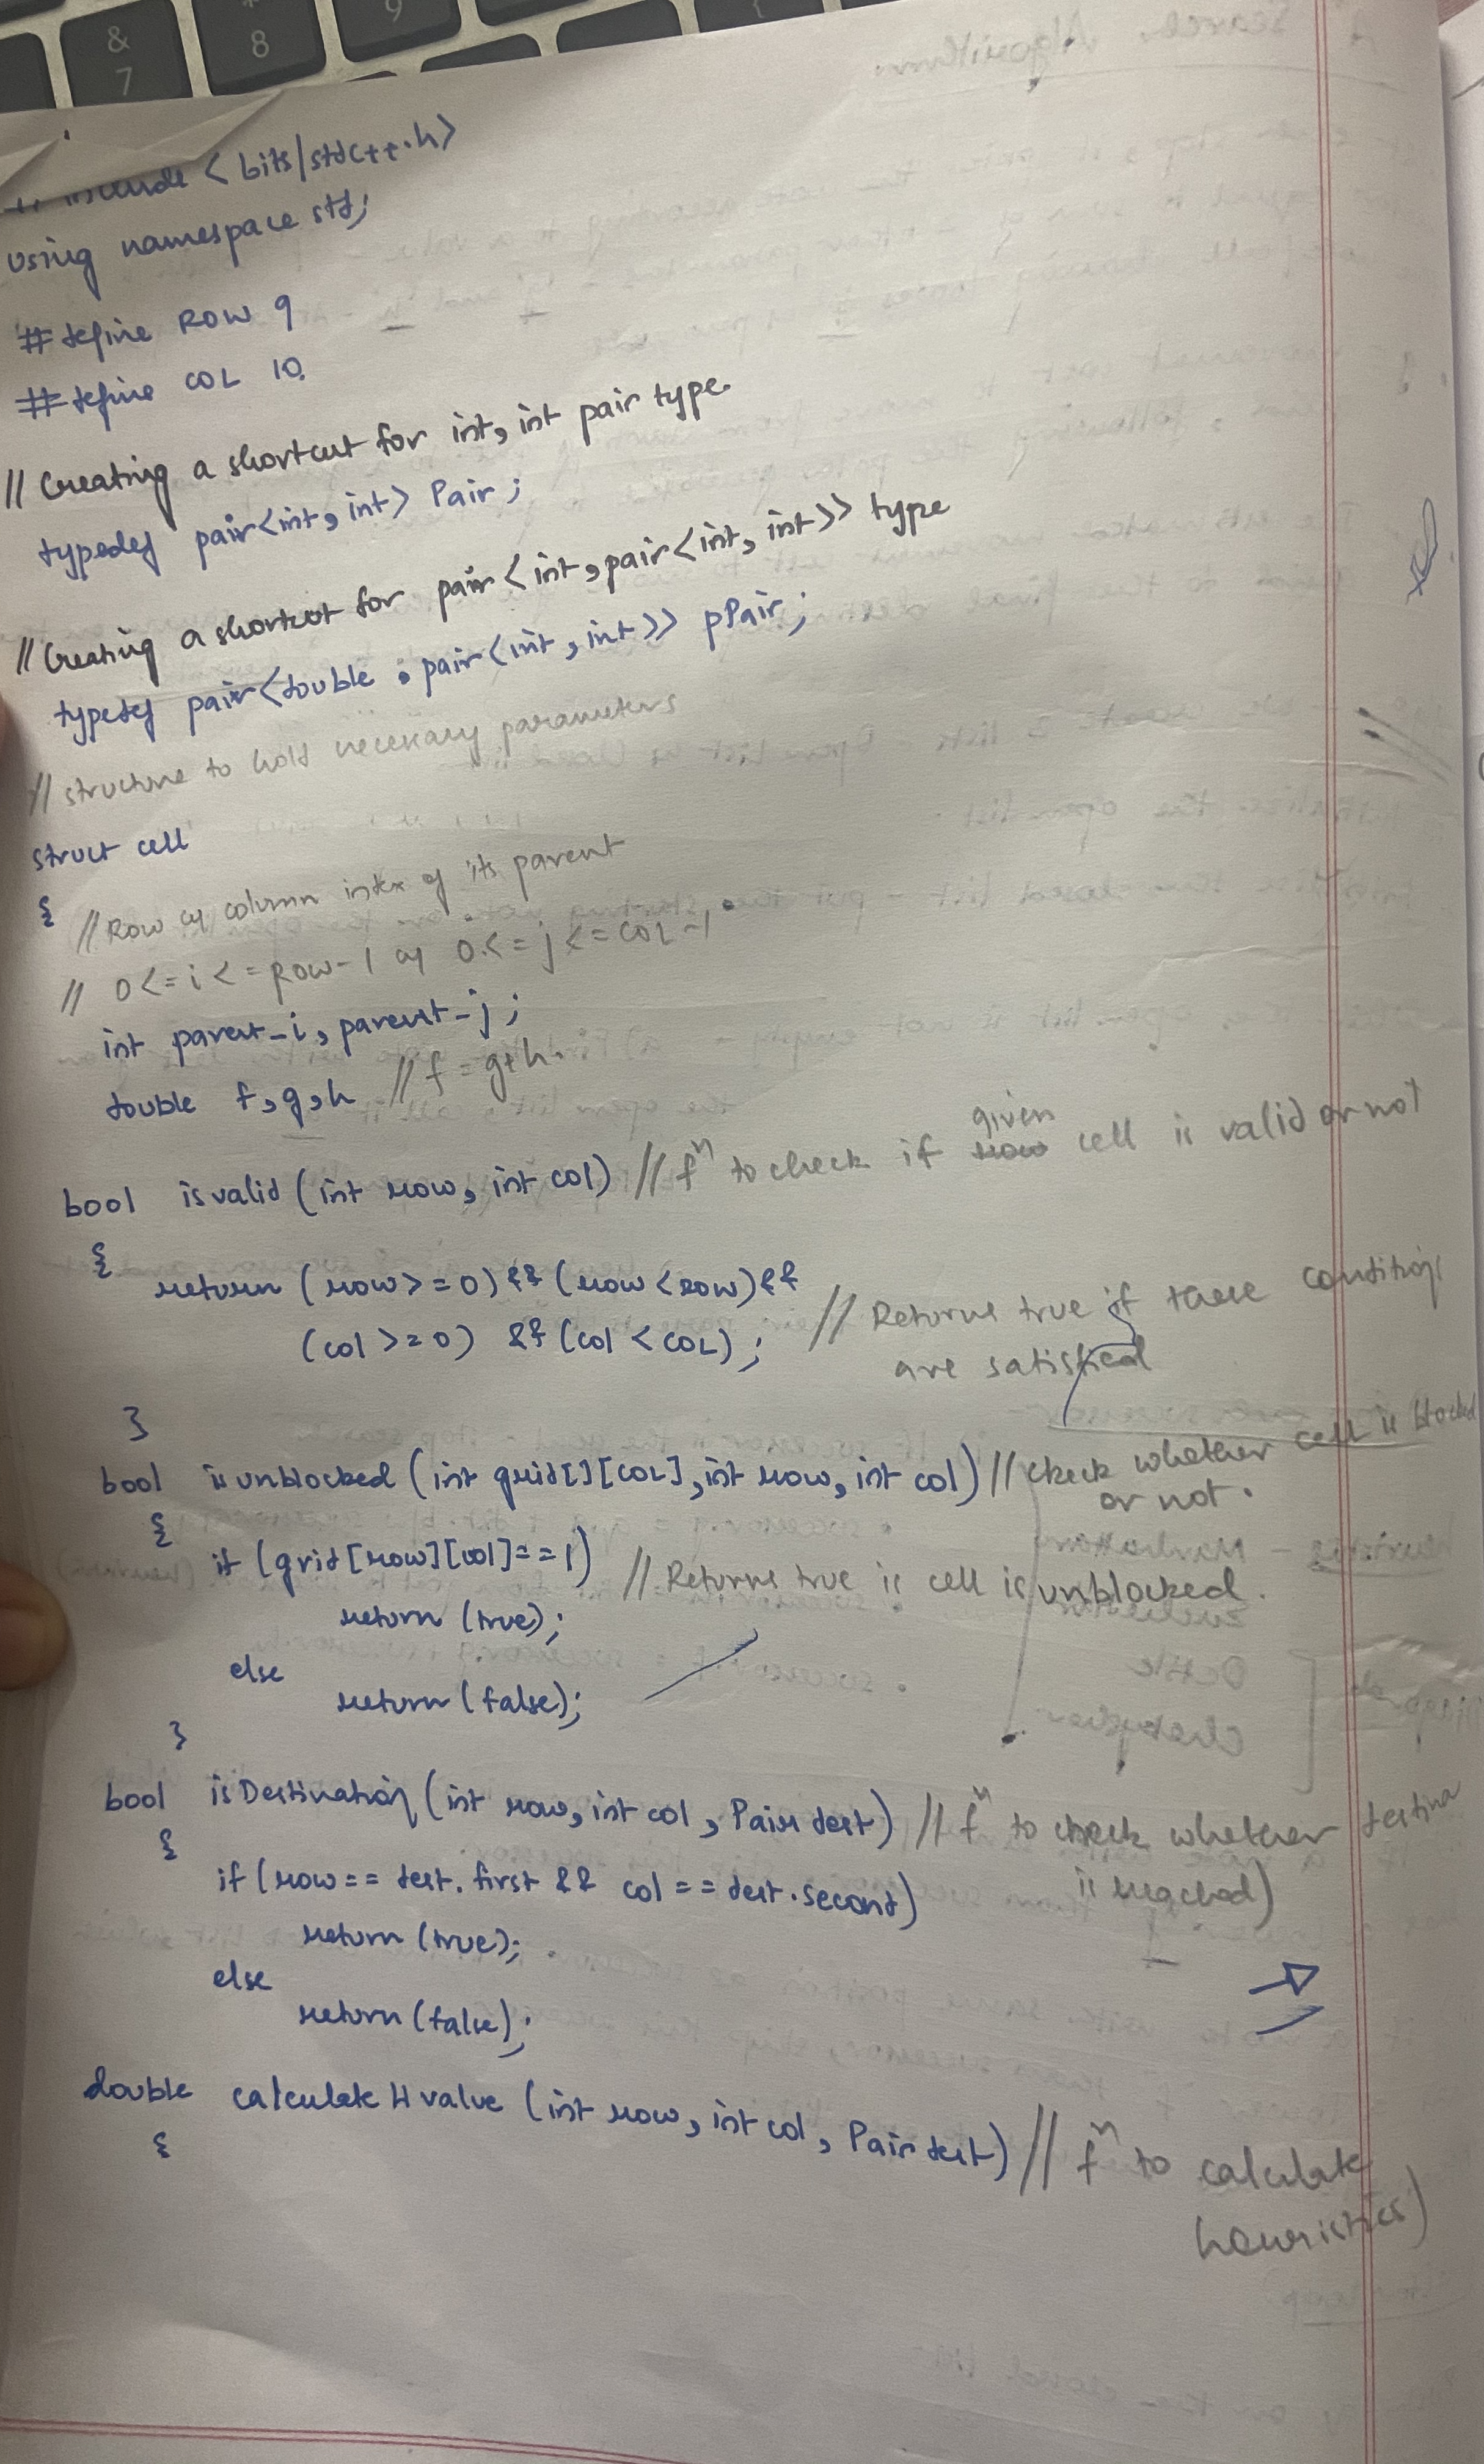 # include < bits/stdc++.h>
using namespace std;
# define ROW 9
# define COL 10.
// Creating a shortcut for int, int pair type.
typedef pair<int, int> Pair;
// Creating a shortcut for pair<int, pair<int, int>> type
typedef pair<double, pair<int, int>> pPair;
// structure to hold necessary parameters
struct cell
{ // Row & column index of its parent
// 0<=i<=ROW-1 & 0<=j<=COL-1
int parent_i, parent_j;
double f, g, h // f = g+h.
bool isvalid (int row, int col) // fⁿ to check if given cell is valid or not
{
return (row >= 0) && (row < ROW) &&
(col >= 0) && (col < COL); // Returns true if these conditions
are satisfied
}
bool isunblocked (int grid[][COL], int row, int col) // check whether cell is blocked
or not.
{
if (grid[row][col]==1) // Returns true is cell is unblocked.
return (true);
else
return (false);
}
bool isDestination (int row, int col, Pair dest) // fⁿ to check whether destina
is reached)
{
if (row == dest.first && col == dest.second)
return (true);
else
return (false);
double calculateHvalue (int row, int col, Pair dest) // fⁿ to calculate
heuristics)
{